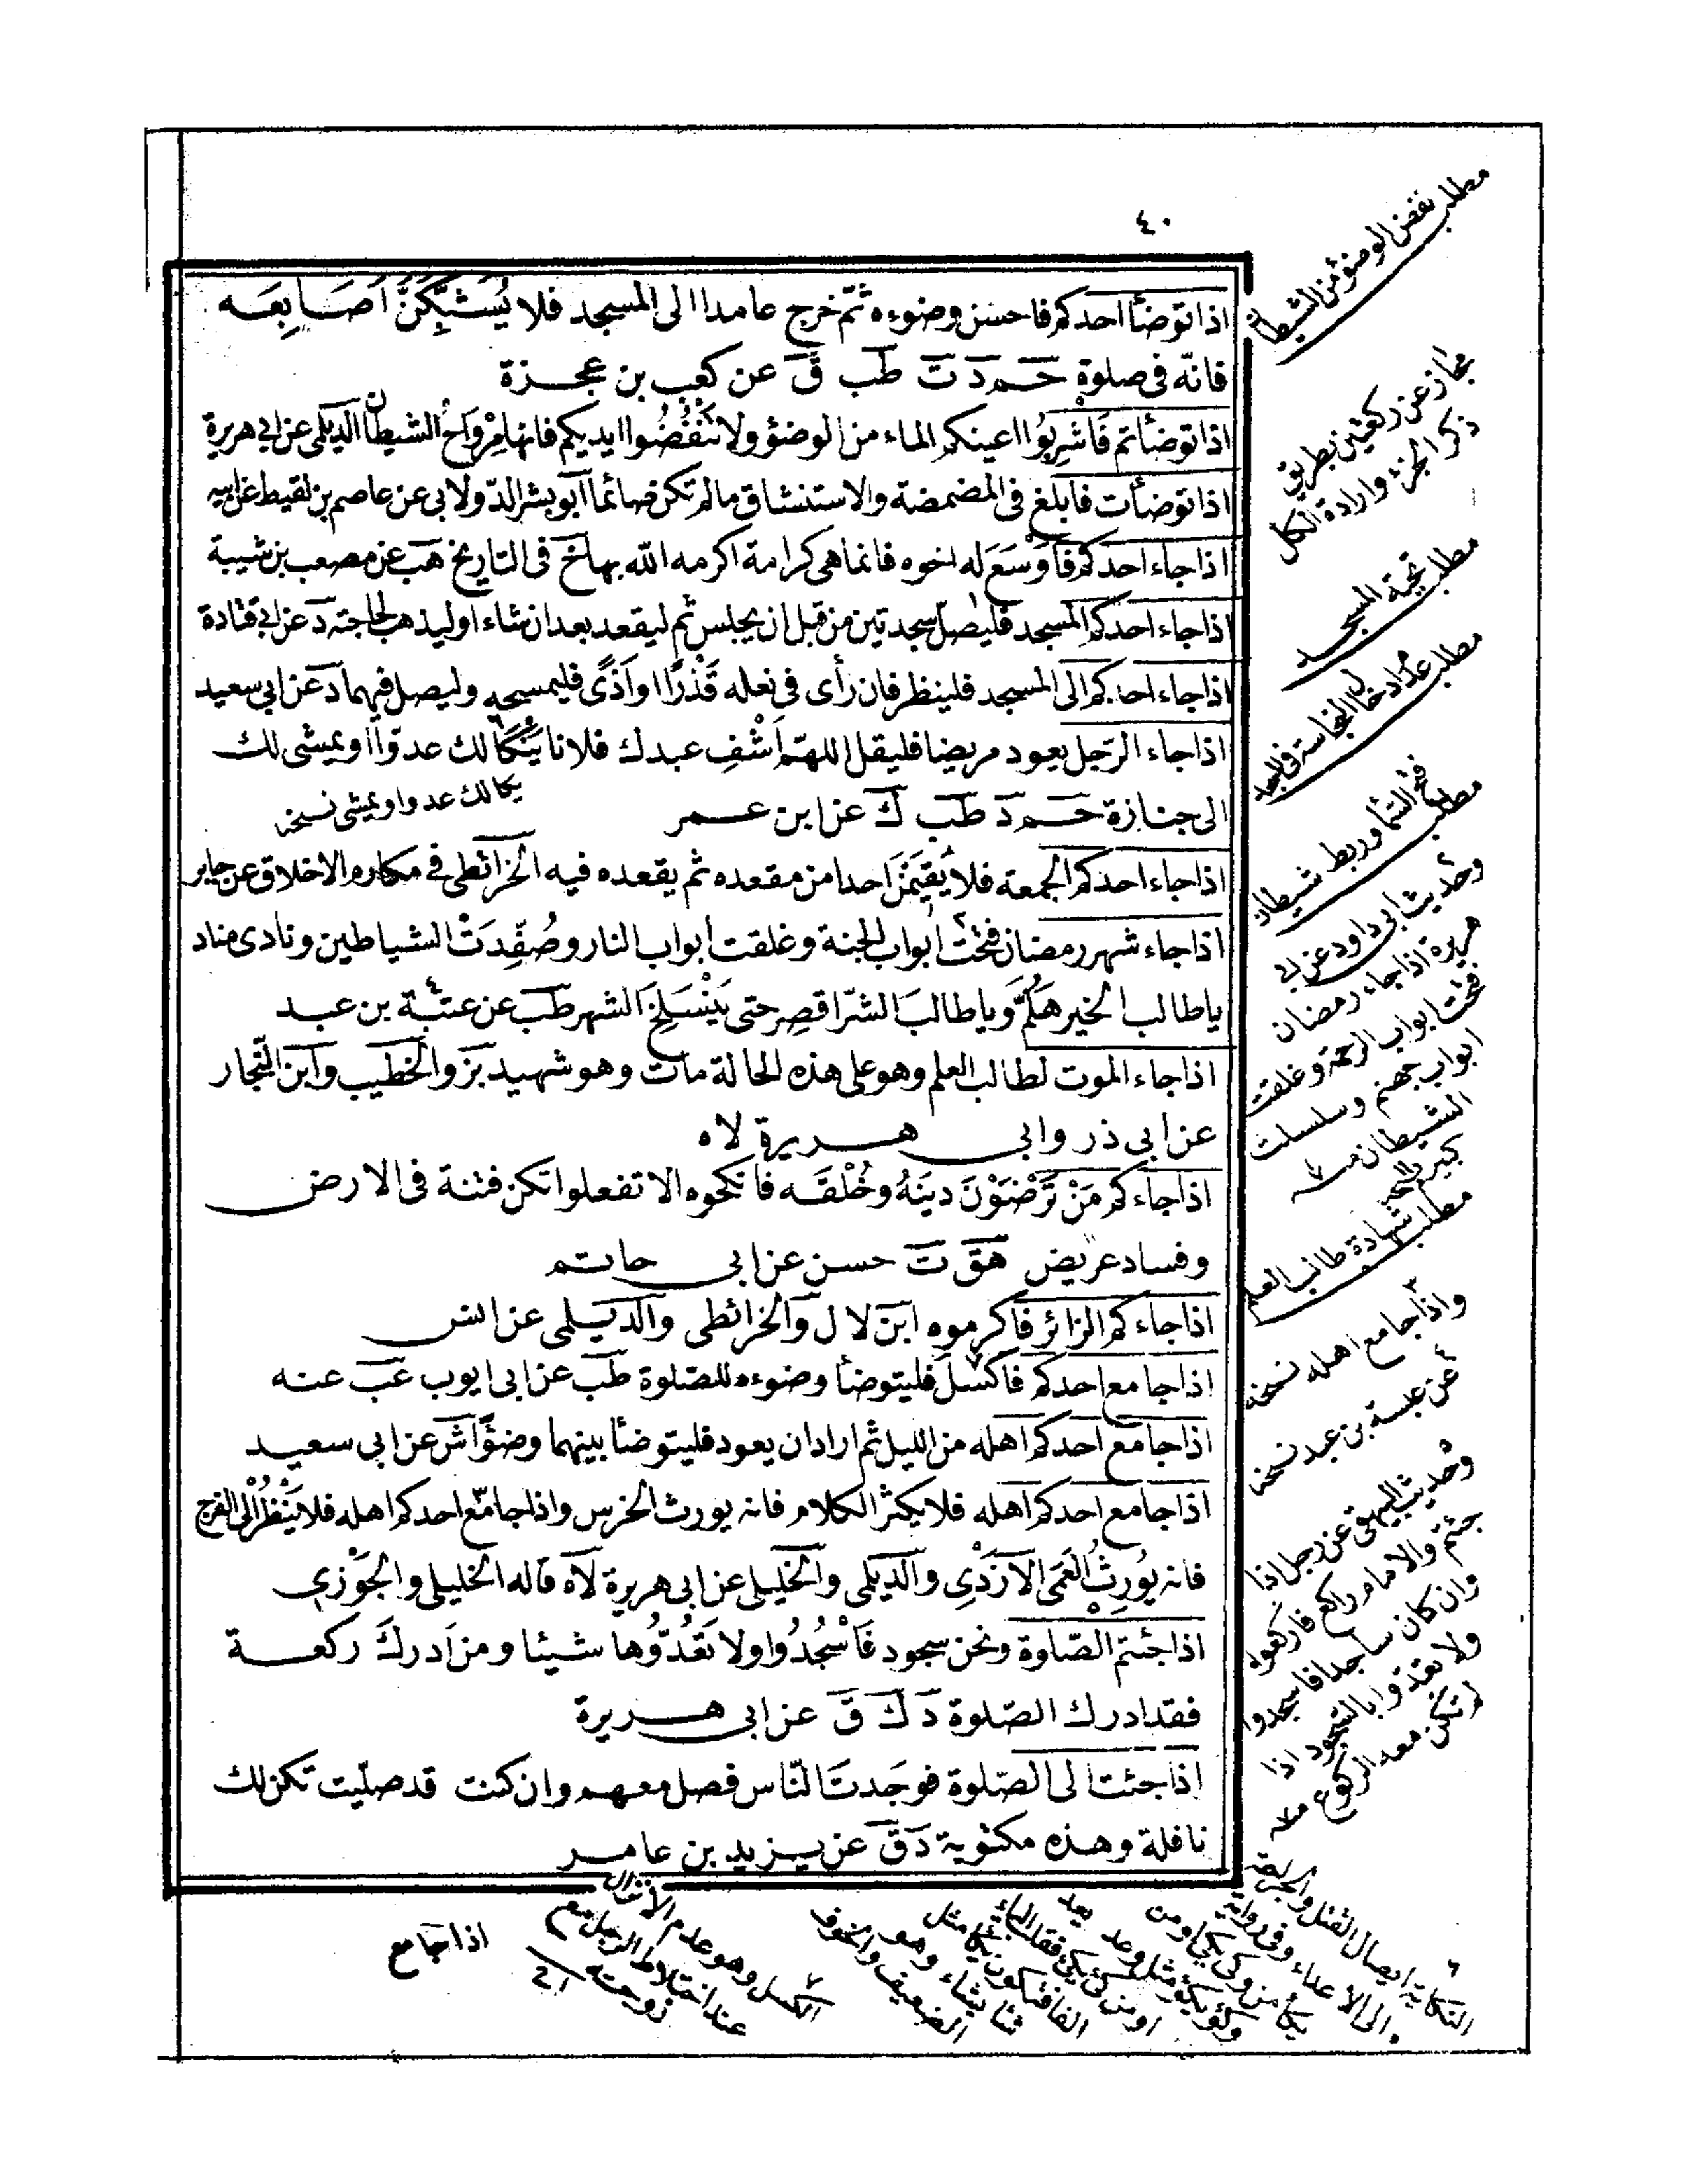 ٤٠
اذا توضأ احدكم فاحسن وضوءه ثمّ خرج عامدا الى المسجد فلا يُشَبِّكَنَّ اَصَابِعَه
فانّه فى صلوة حم د ت طب ق عن كعب بن عجزة
اذا توضأتم فَاَشْرِبُوا اعينكم الماء من الوضؤ ولا تَنْفُضُوا ايديكم فانها مِرْوَاحُ الشيطان الديلمى عن ابى هريرة
اذا توضأت فابلغ فى المضمضة والاستنشاق مالم تكن صائما ابو بشر الدّولابى عن عاصم بن لقيط عن ابيه
اذا جاء احدكم فَاَوْسَعَ له اخوه فانما هى كرامة اكرمه الله بها خ فى التاريخ هب عن مصعب بن شيبة
اذا جاء احدكم المسجد فليصلّ سجدتين من قبل ان يجلس ثم ليقعد بعد ان شاء او ليذهب لحاجته د عن ابى قتادة
اذا جاء احدكم الى المسجد فلينظر فان رأى فى نعله قَذْرًا او اَذًى فليمسحه وليصل فيهما د عن ابى سعيد
اذا جاء الرّجل يعود مريضا فليقل اللهمّ اشْفِ عبدك فلانا يَنْكَأُ لك عدوّا او يمشى لك
الى جنازة حم د طب ك عن ابن عمر
يكا لك عدوا ويمشى نسخه
اذا جاء احدكم الجمعة فلا يُقِيمَنَّ احدا من مقعده ثم يقعده فيه الخرائطى فى مكارم الاخلاق عن جابر
اذا جاء شهر رمضان فتحت ابواب الجنة وغلقت ابواب النار وصُفِّدَتْ الشياطين ونادى مناد
يا طالب الخير هَلُمَّ وَيا طالبَ الشرّ اقصِر حتى يَنْسَلِخَ الشهر طب عن عتبة بن عبد
اذا جاء الموت لطالب العلم وهو على هذه الحالة مات وهو شهيد بز والخطيب وابن النّجار
عن ابى ذر وابى هريرة لاه
اذا جاءكم مَنْ تَرْضَوْنَ دينَهُ وخُلْقَه فانكحوه الا تفعلوا تكن فتنة فى الارض
وفساد عريض هق ت حسن عن ابى حاتم
اذا جاءكم الزائر فاكرموه ابن لال والخرائطى والديلمى عن انس
اذا جامع احدكم فاكْسَلَ فليتوضأ وضوءه للصّلوة طب عن ابى ايوب عب عنه
اذا جامع احدكم اهله من الليل ثم اراد ان يعود فليتوضأ بينهما وضؤًا ش عن ابى سعيد
اذا جامع احدكم اهله فلا يكثر الكلام فانه يورث الخرس واذا جامع احدكم اهله فلا يَنْظُرْ الى الفرج
فانه يُورِثُ العَمَى الاَزْدِى والديلمى والخليلى عن ابى هريرة لاه قاله الخليلى والجَوْزى
اذا جئتم الصّلوة ونحن سجود فَاسْجُدُوا ولا تَعُدُّوها شيئا ومن اَدركَ ركعة
فقد ادرك الصّلوة د ك ق عن ابى هريرة
اذا جئت الى الصّلوة فوجَدتَ النّاس فصل معهم وان كنت قد صلّيت تكن لك
نافلة وهذه مكتوبة د ق عن يزيد بن عامر
مطلب نفض الوضوء من الشيطان
مجاز عن ركعتين بطريق
ذكر الجزء وارادة الكل
مطلب تحية المسجد
مطلب عدم ادخال النجاسة فى المسجد
مطلب فتح السما وربط شيطان
وحديث ابى داود عن ابى
هريرة اذا جاء رمضان
فتحت ابواب الرحمة وغلقت
ابواب جهنم وسلسلت
الشيطان
مطلب شهادة طالب العلم
واذا جامع اهله نسخه
عن عبسة بن عبد نسخه
وحديث البيهقى عن رجل اذا
جئتم والامام راكع فاركعوا
وان كان ساجدا فاسجدوا
ولا تعتدوا بالسجود اذا
لم تكن معه الركوع
النكاية ايصال القتل والجراحة
الى الاعداء وفى رواية
الكسل وهو عدم الانزال
عند اختلاط الرجل مع
زوجته
اذا جامع